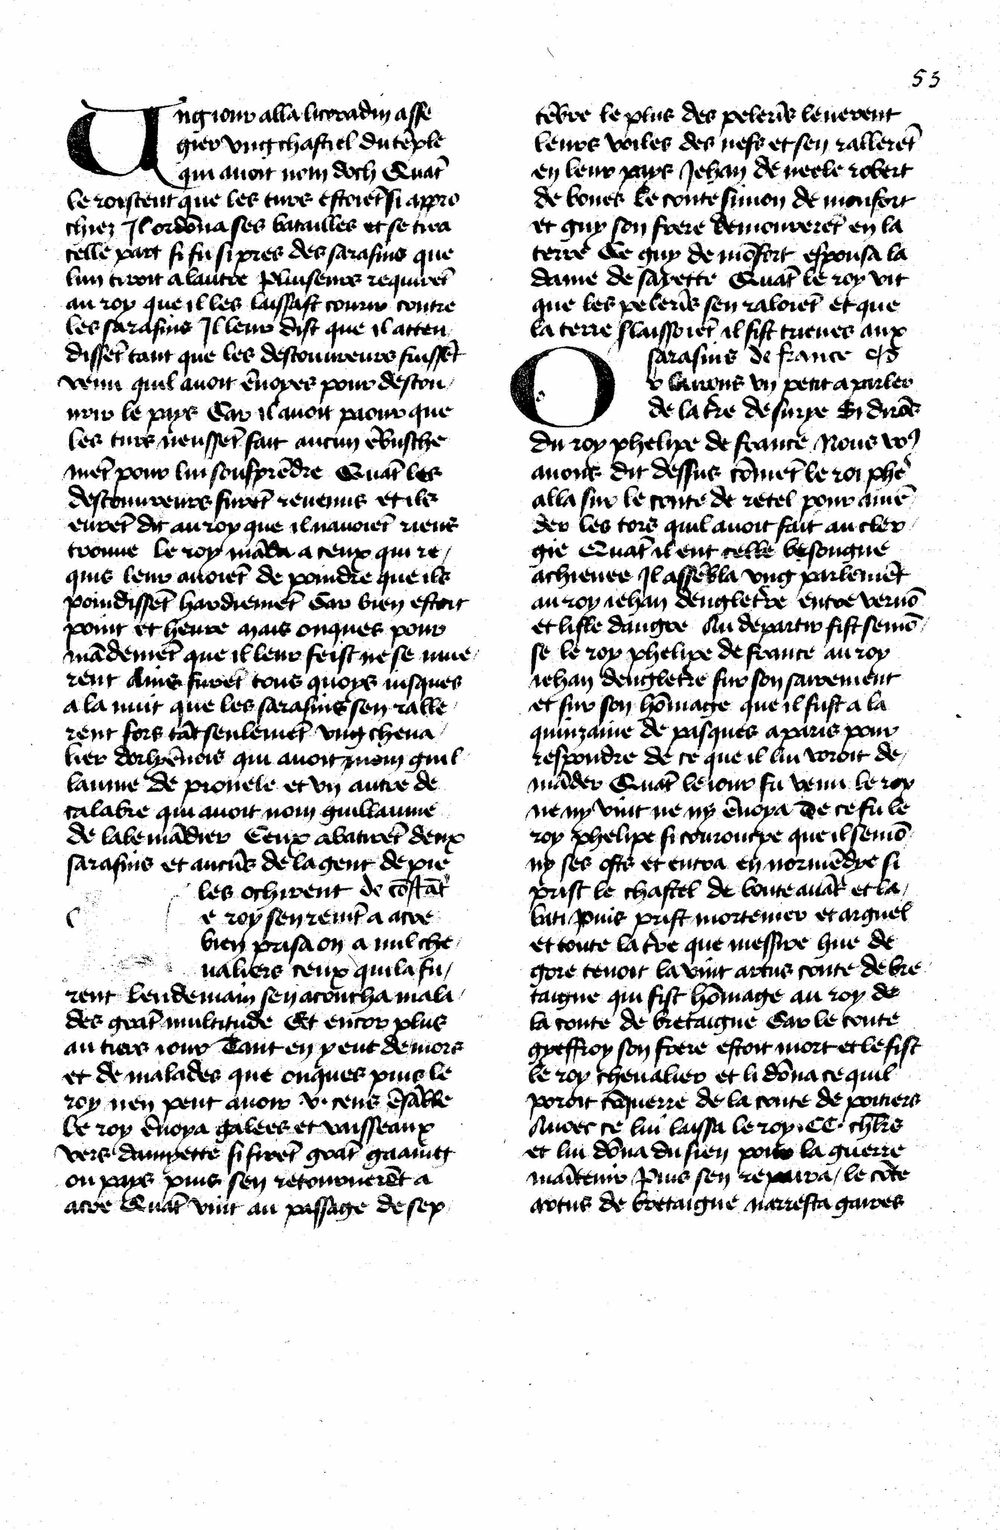 53
Ung iour alla licoradin asse
gier ung chastel du tẽple
qui auoit nom doch Quãt
le roi scent que les turs estoiẽt si appro
chiez Il ordõna ses batailles et se tira
celle part si fu si pres des sarasins que
lun tiroit a lautre Pluiseurs requirẽt
au roy que il les laissast courir contre
les sarasins Il leur dist que il atten
dissẽt tant que les descouureurs fussẽt
venu quil auoit ẽuoyes pour descou
urir le pays Car il auoit paour que
les turs neussẽt fait aucun ẽbusche
mẽt pour lui sousprẽdre Quãt les
descouureurs furẽt reuenus et ils
eurẽt dit au roy que il nauoiẽt riens
trouue le roy mãda a ceux qui re
quis leur auoiẽt de poindre que ils
poindissẽt hardiemẽt Car bien estoit
point et heure mais onques pour
mãdemẽt que il leur feist ne se mue
rent Ains furẽt tous quoys iusques
a la nuit que les sarasins sen ralle
rent fors tãt seulemẽt ung cheua
lier dorlyẽnois qui auoit nom guil
laume de pronele et un autre de
calabre qui auoit nom guillaume
de labemãdier Ceux abatirẽt deux
sarasins et aucũs de la gent de pie
les ochirent de cõstãt
e roy sen reuĩt a acre
bien prisa on a mil che
ualiers ceux qui la fu
rent lendemain sen acoucha mala
des grãt multitude Et encor plus
au tiers iour Tant en y eut de mors
et de malades que onques puis le
roy nen peut auoir v. cens ẽsãble
Le roy ẽuoya galees et vaisseaux
vers damyette si firẽt grãt gaaing
ou pays puis sen retournerẽt a
acre Quãt vint au passage de sep
tẽbre le plus des pelerĩs leuerent
leurs voiles des nefs et sen rallerẽt
en leur pays Jehan de neele robert
de boues le conte simon de monfort
et guy son frere demourerẽt en la
terre Ce guy de mõfort espousa la
dame de sayette Quãt le roy vit
que les pelerĩs sen raloiẽt et que
la terre slaissoiẽt il fist trieues aux
sarasins de france
r lairons un petit a parler
de la tre de surye Si dirõs
du roy phelipe de france Nous vo9
auons dit dessus cõmẽt le roi phe
alla sur le conte de retel pour amẽ
der les tors quil auoit fait au cler
gie Quãt il eut celle besongne
achieuee Il assẽbla ung parlemẽt
au roy iehan dengletre entre vernõ
et lisle dangre Au departir fist semõ
se le roy phelipe de france au roy
iehan dengletre sur son sairement
et sur son hõmage que il fust a la
quinzaine de pasques a paris pour
respondre de ce que il lui voroit de
mãder Quãt le iour fu venu le roy
ne ny vint ne ny ẽuoya De ce fu le
roy phelipe si courouche que il semõ
ny ses osts et entra en normẽdye si
prist le chastel de boute auãt et la
luti Puis prist mortemer et arguel
et toute la tre que messire hue de
gore tenoit la vint artus conte de bre
taigne qui fist hõmage au roy de
la conte de bretaigne Car le conte
gyeffroy son frere estoit mort et le fist
le roy cheualier et li dõna ce quil
poroit cõquerre de la conte de poitiers
Auec ce lui laissa le roy .CC. chlrs
et lui dõna du sien pour la guerre
maĩtenir Puis sen repaira le cõte
artus de bretaigne narresta gaires